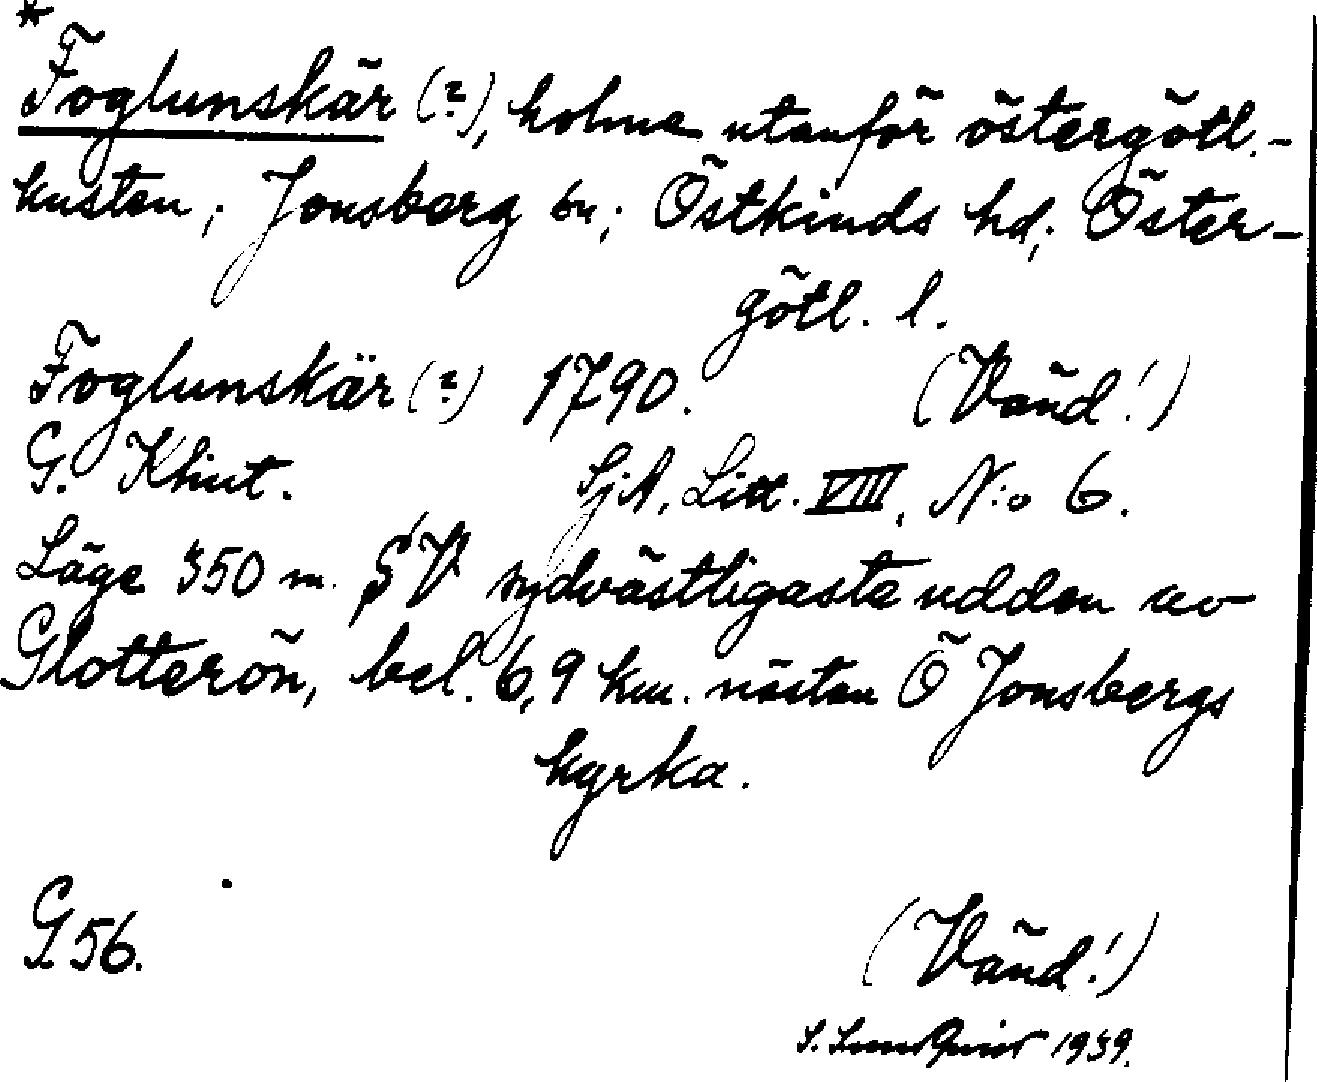 *
Foglunskär (?), holme utanför östergötl.-
kusten; Jonsberg sn; Östkinds hd; Öster-
götl. l.
Foglunskär (?) 1790. (Vänd!)
G. Khut. SjA. Litt. VIII, N:o 6.
Läge 350 m. SV sydvästligaste udden av
Slotterön, bel. 6,9 km. nästan Ö Jonsbergs
kyrka.
G 56. (Vänd!)
S. Lundquist 1939.